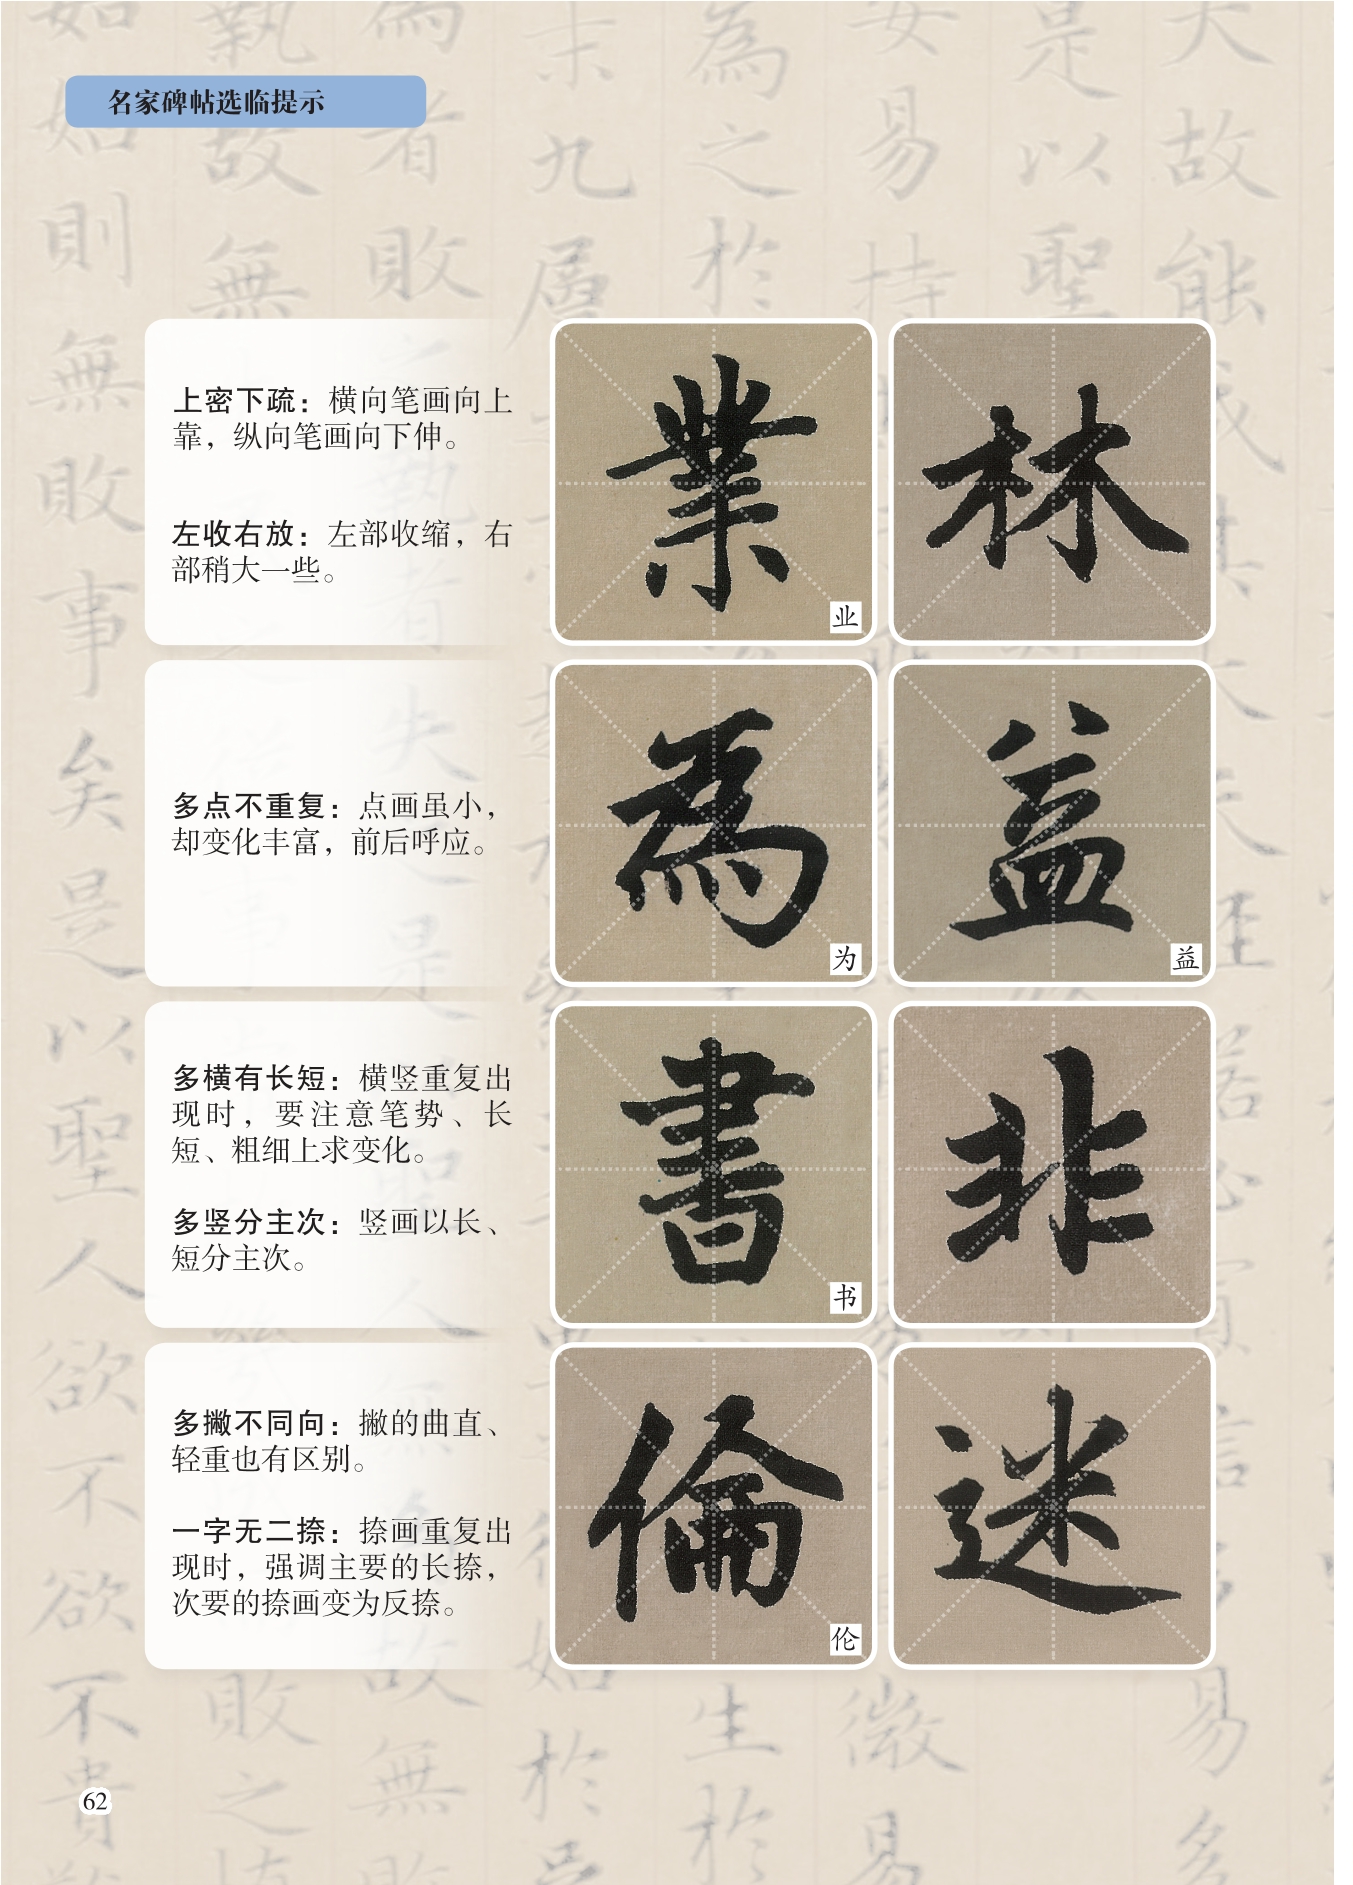 名家碑帖选临提示
上密下疏：横向笔画向上
靠，纵向笔画向下伸。
左收右放：左部收缩，右
部稍大一些。
業
业
林
多点不重复：点画虽小，
却变化丰富，前后呼应。
為
为
益
益
多横有长短：横竖重复出
现时，要注意笔势、长
短、粗细上求变化。
多竖分主次：竖画以长、
短分主次。
書
书
非
多撇不同向：撇的曲直、
轻重也有区别。
一字无二捺：捺画重复出
现时，强调主要的长捺，
次要的捺画变为反捺。
倫
伦
迷
62